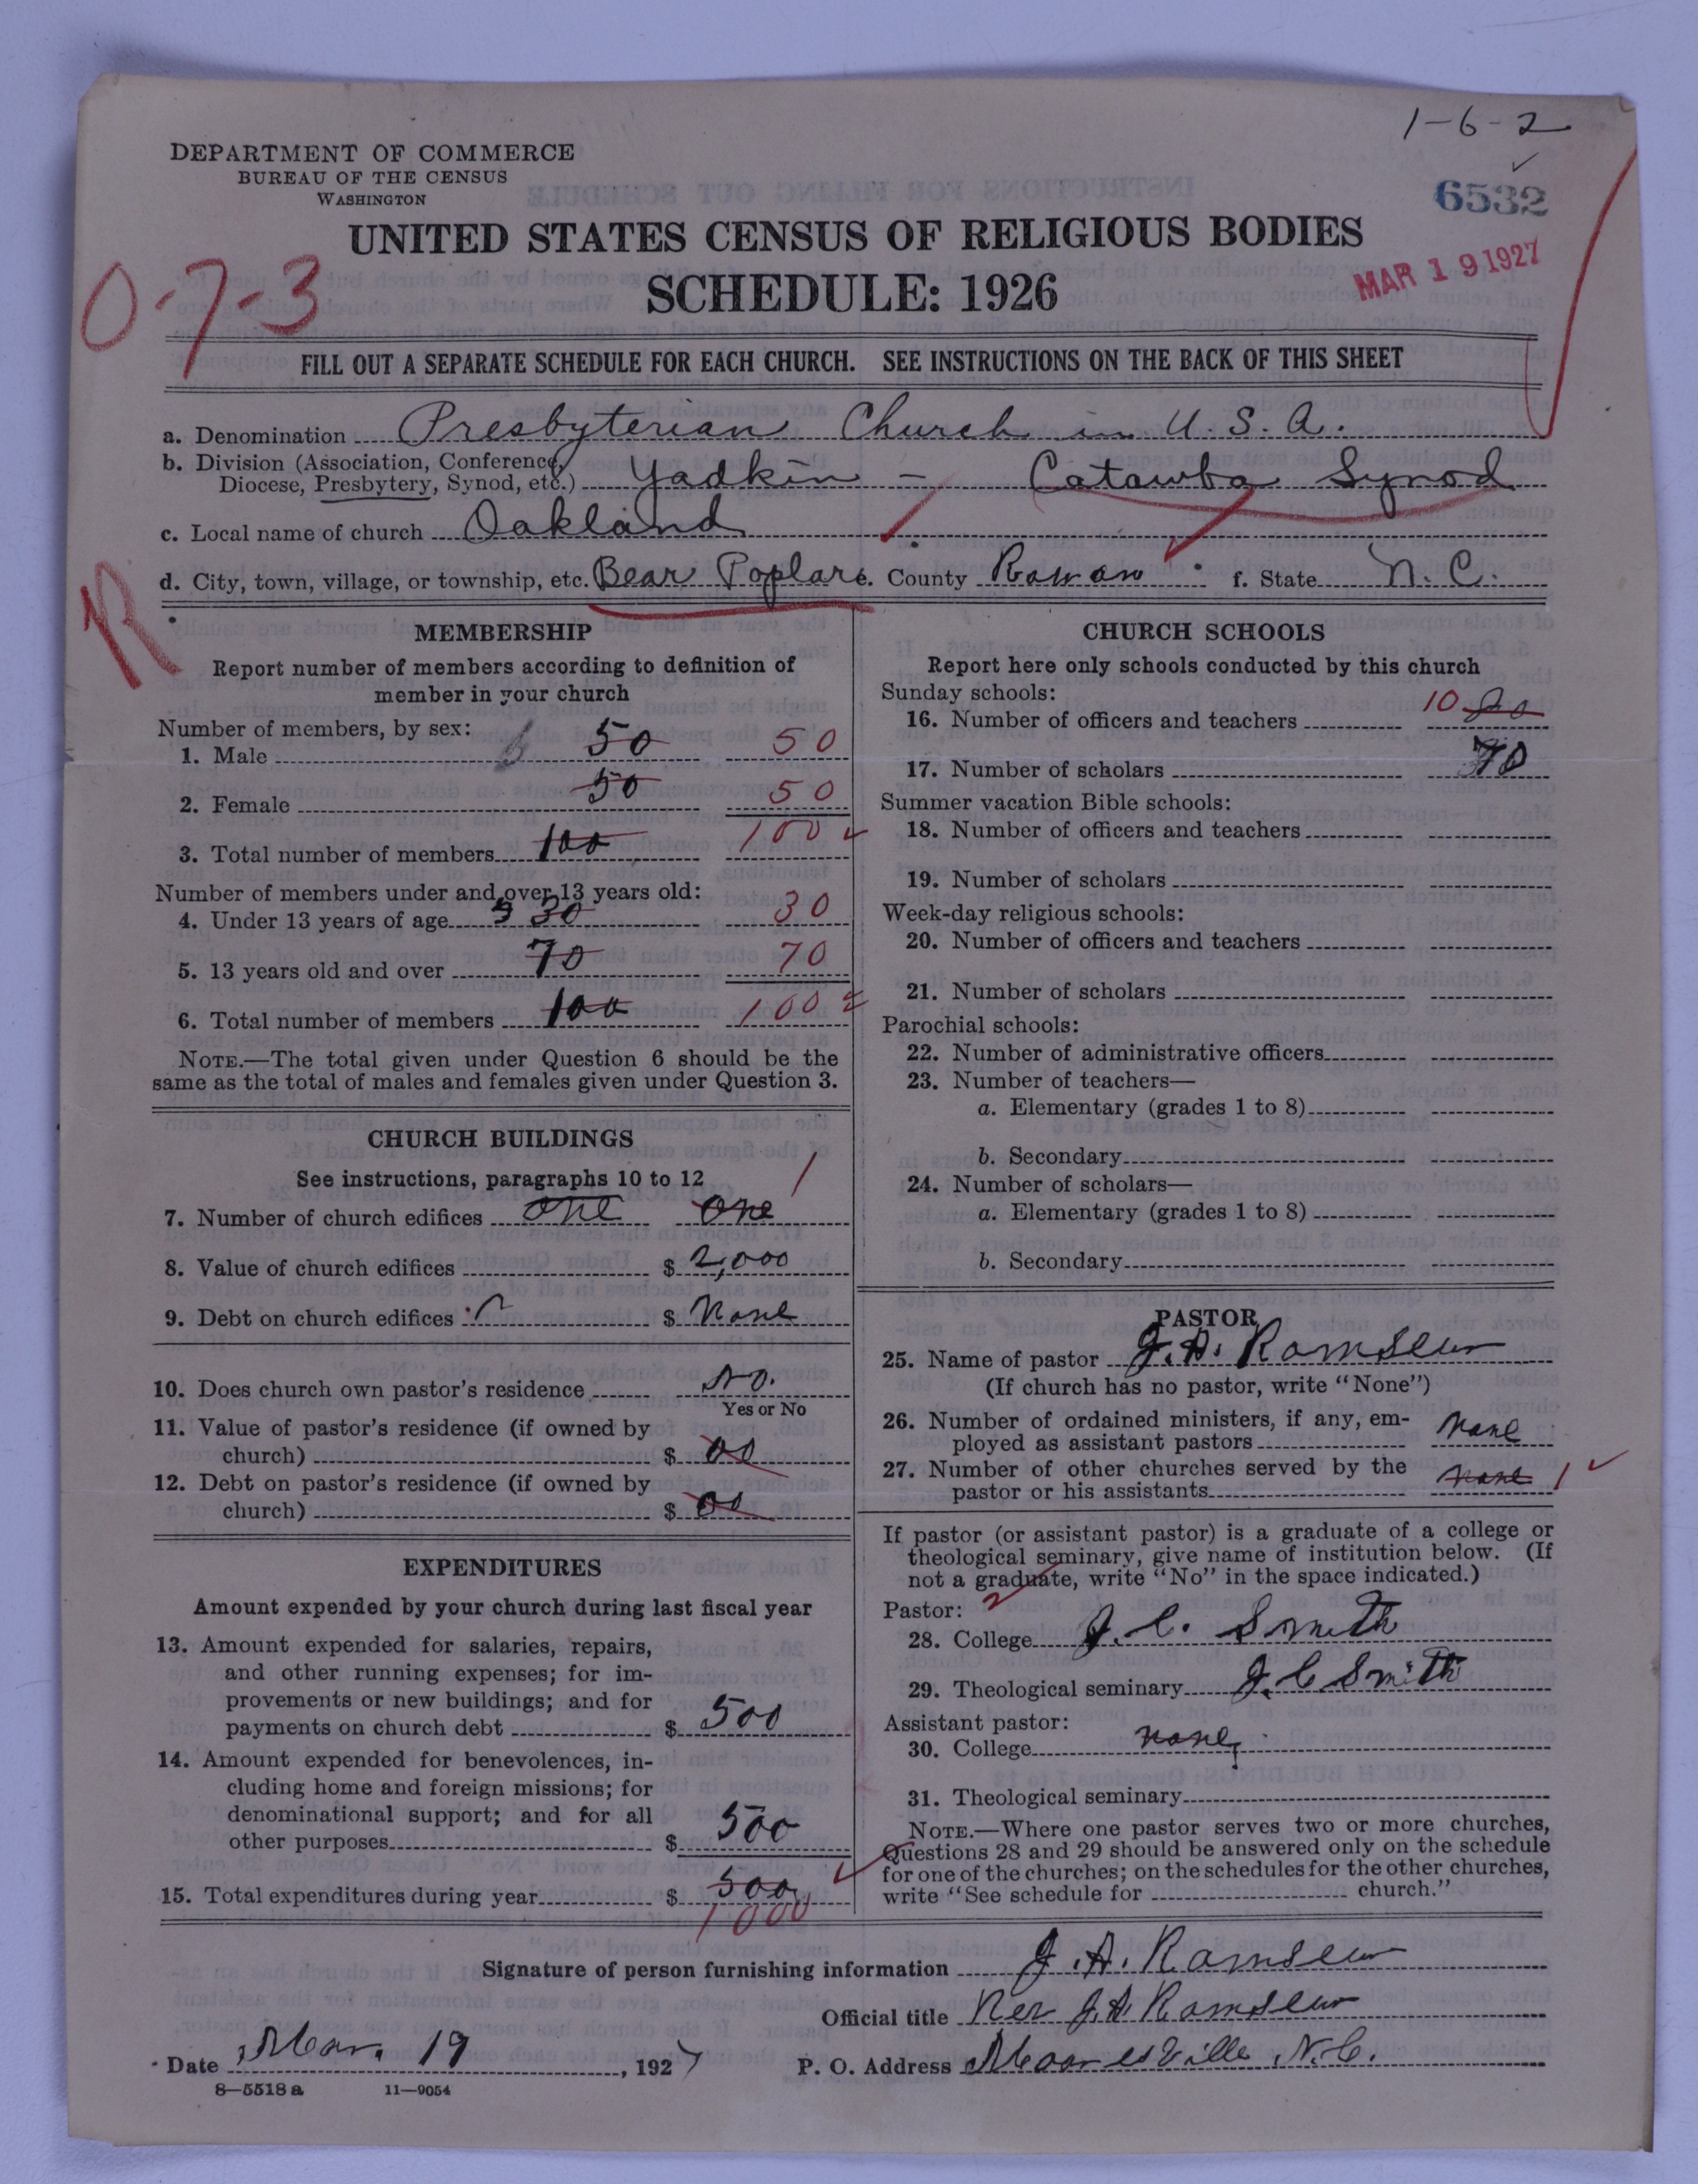 1-6-2
DEPARTMENT OF COMMERCE
BUREAU OF THE CENSUS
WASHINGTON
6532
UNITED STATES CENSUS OF RELIGIOUS BODIES
MAR 19 1927
0-7-3
SCHEDULE: 1926
FILL OUT A SEPARATE SCHEDULE FOR EACH CHURCH. SEE INSTRUCTIONS ON THE BACK OF THIS SHEET
a. Denomination Presbyterian Church in U. S. A.
b. Division (Association, Conference,
Diocese, Presbytery, Synod, etc.) Yadkin - Catawba Synod
c. Local name of church Oakland
d. City, town, village, or township, etc. Bear Poplar e. County Rowan f. State N. C.
R
MEMBERSHIP
Report number of members according to definition of
member in your church
Number of members, by sex:
1. Male 50 50
2. Female 50 50
3. Total number of members 100 100
Number of members under and over 13 years old:
4. Under 13 years of age 30 30
5. 13 years old and over 70 70
6. Total number of members 100 100
NOTE.—The total given under Question 6 should be the
same as the total of males and females given under Question 3.
CHURCH BUILDINGS
See instructions, paragraphs 10 to 12 1
7. Number of church edifices one one
8. Value of church edifices $ 2,000
9. Debt on church edifices $ None
10. Does church own pastor's residence No.
Yes or No
11. Value of pastor's residence (if owned by
church) $ 00
12. Debt on pastor's residence (if owned by
church) $ 00
EXPENDITURES
Amount expended by your church during last fiscal year
13. Amount expended for salaries, repairs,
and other running expenses; for im-
provements or new buildings; and for
payments on church debt $ 500
14. Amount expended for benevolences, in-
cluding home and foreign missions; for
denominational support; and for all
other purposes $ 500
15. Total expenditures during year $ 500
1000
CHURCH SCHOOLS
Report here only schools conducted by this church
Sunday schools:
16. Number of officers and teachers 10
17. Number of scholars 70
Summer vacation Bible schools:
18. Number of officers and teachers
19. Number of scholars
Week-day religious schools:
20. Number of officers and teachers
21. Number of scholars
Parochial schools:
22. Number of administrative officers
23. Number of teachers—
a. Elementary (grades 1 to 8)
b. Secondary
24. Number of scholars—
a. Elementary (grades 1 to 8)
b. Secondary
PASTOR
25. Name of pastor J. A. Ramseur
(If church has no pastor, write "None")
26. Number of ordained ministers, if any, em-
ployed as assistant pastors None
27. Number of other churches served by the
pastor or his assistants None 1
If pastor (or assistant pastor) is a graduate of a college or
theological seminary, give name of institution below. (If
not a graduate, write "No" in the space indicated.)
Pastor:
28. College J. C. Smith
29. Theological seminary J. C Smith
Assistant pastor:
30. College none
31. Theological seminary
NOTE.—Where one pastor serves two or more churches,
Questions 28 and 29 should be answered only on the schedule
for one of the churches; on the schedules for the other churches,
write "See schedule for church."
Signature of person furnishing information J. A. Ramseur
Official title Rev J. A. Ramseur
Date Mar. 19, 1927 P. O. Address Mooresville N. C.
8—5518 a 11—9054